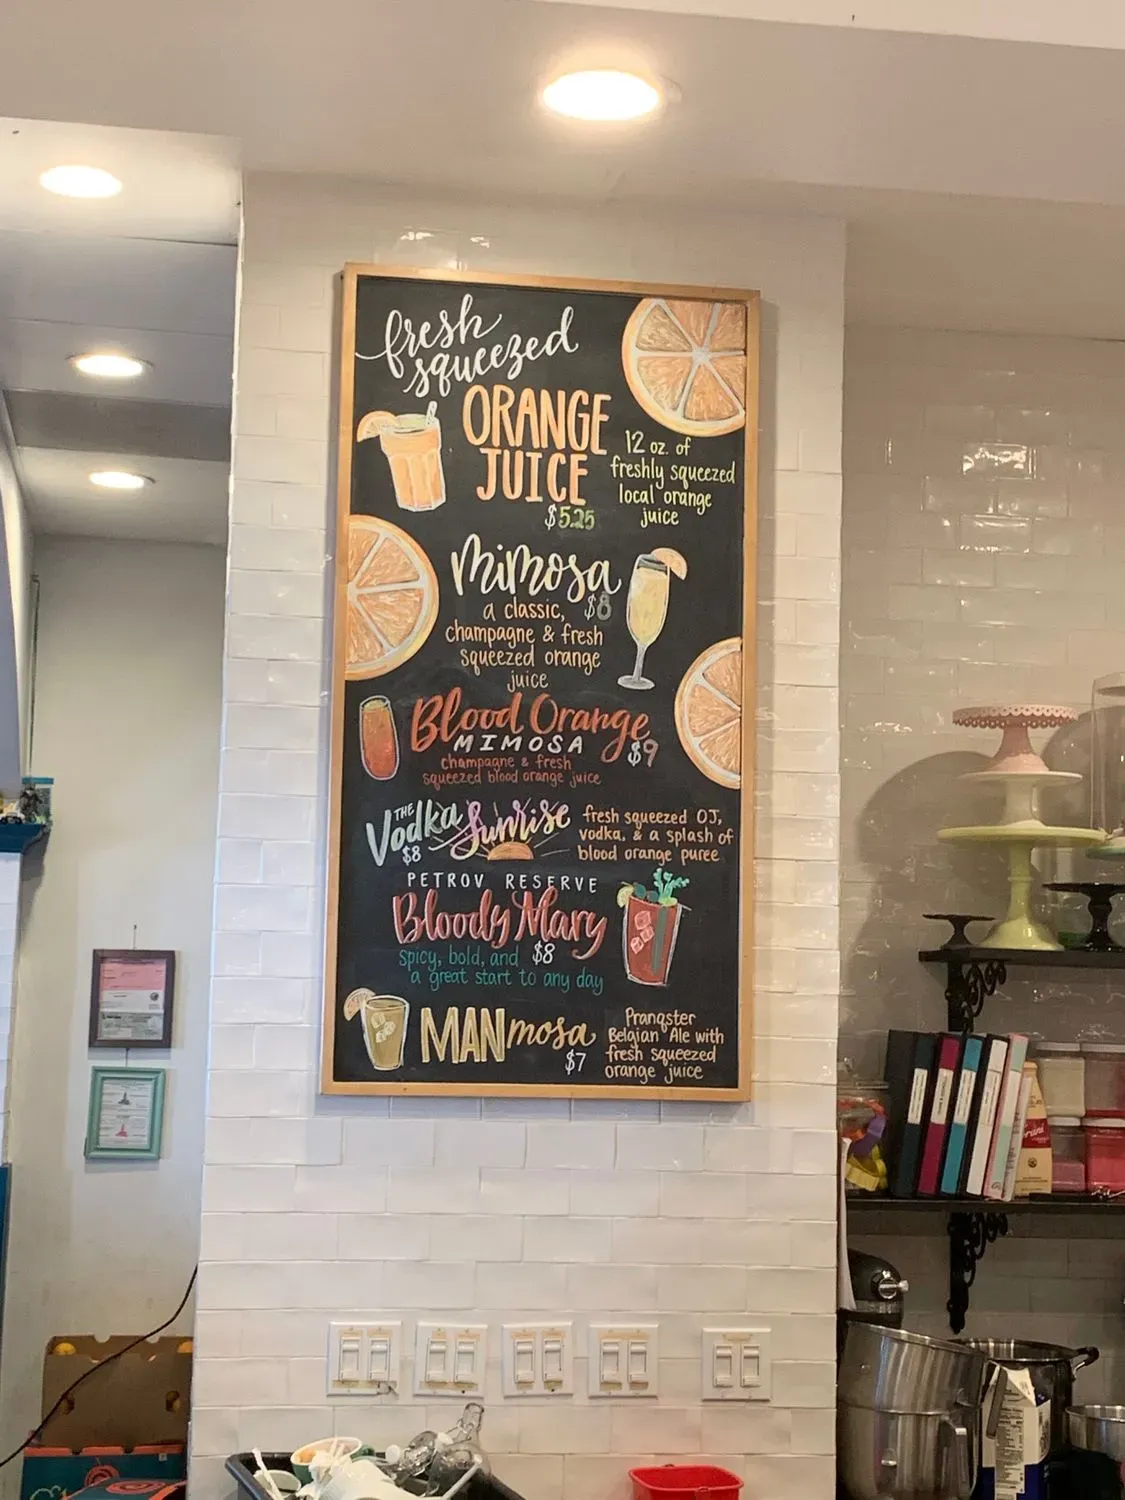 fresh
squeezed
ORANGE
JUICE
$5.25
12 oz. of
freshly squeezed
local orange
juice
mimosa
$8
a classic,
champagne & fresh
squeezed orange
juice
Blood Orange
MIMOSA
$9
champagne & fresh
squeezed blood orange juice
THE
Vodka Sunrise
$8
fresh squeezed OJ,
vodka, & a splash of
blood orange puree
PETROV RESERVE
Bloody Mary
spicy, bold, and $8
a great start to any day
MANmosa
$7
Pranqster
Belgian Ale with
fresh squeezed
orange juice